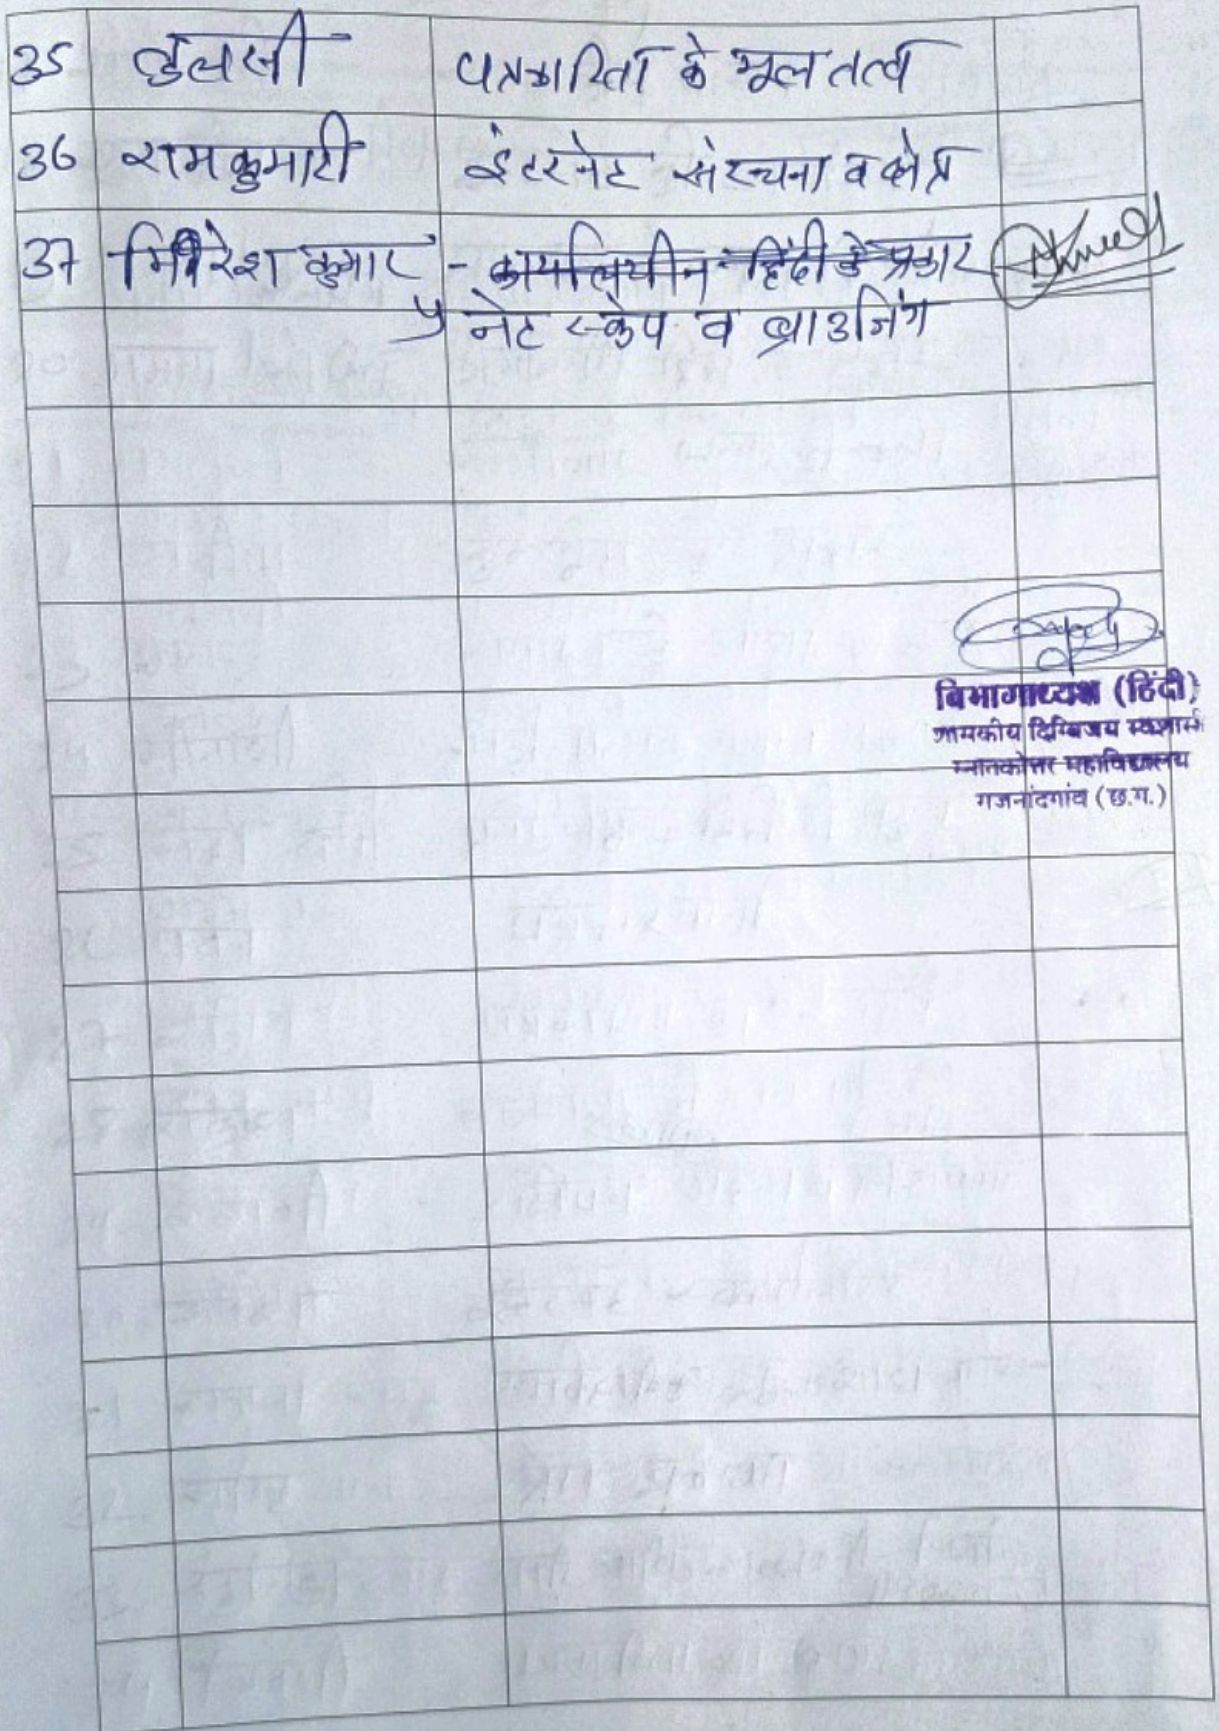 35 तुलसी पत्रकारिता के मूल तत्व
36 रामकुमारी इंटरनेट संरचना व क्षेत्र
37 कुमार - कार्यालयीन हिंदी के प्रकार
नेट स्केप व ब्राउजिंग
विभागाध्यक्ष (हिंदी)
शासकीय दिग्विजय स्वशासी
स्नातकोत्तर महाविद्यालय
राजनांदगांव (छ.ग.)